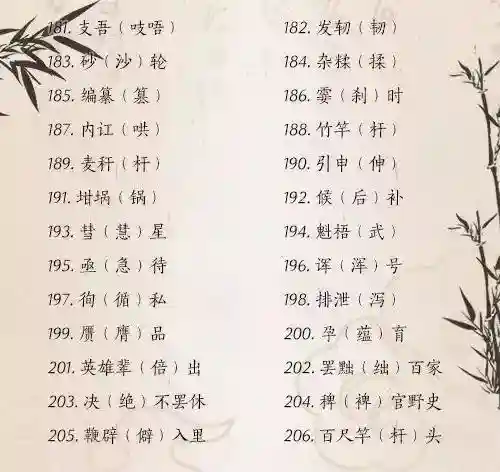 181. 支吾（吱唔） 182. 发轫（韧）
183. 砂（沙）轮 184. 杂糅（揉）
185. 编纂（篡） 186. 霎（刹）时
187. 内讧（哄） 188. 竹竿（杆）
189. 麦秆（杆） 190. 引申（伸）
191. 坩埚（锅） 192. 候（后）补
193. 彗（慧）星 194. 魁梧（武）
195. 亟（急）待 196. 诨（浑）号
197. 徇（循）私 198. 排泄（泻）
199. 赝（膺）品 200. 孕（蕴）育
201. 英雄辈（倍）出 202. 罢黜（绌）百家
203. 决（绝）不罢休 204. 稗（裨）官野史
205. 鞭辟（僻）入里 206. 百尺竿（杆）头